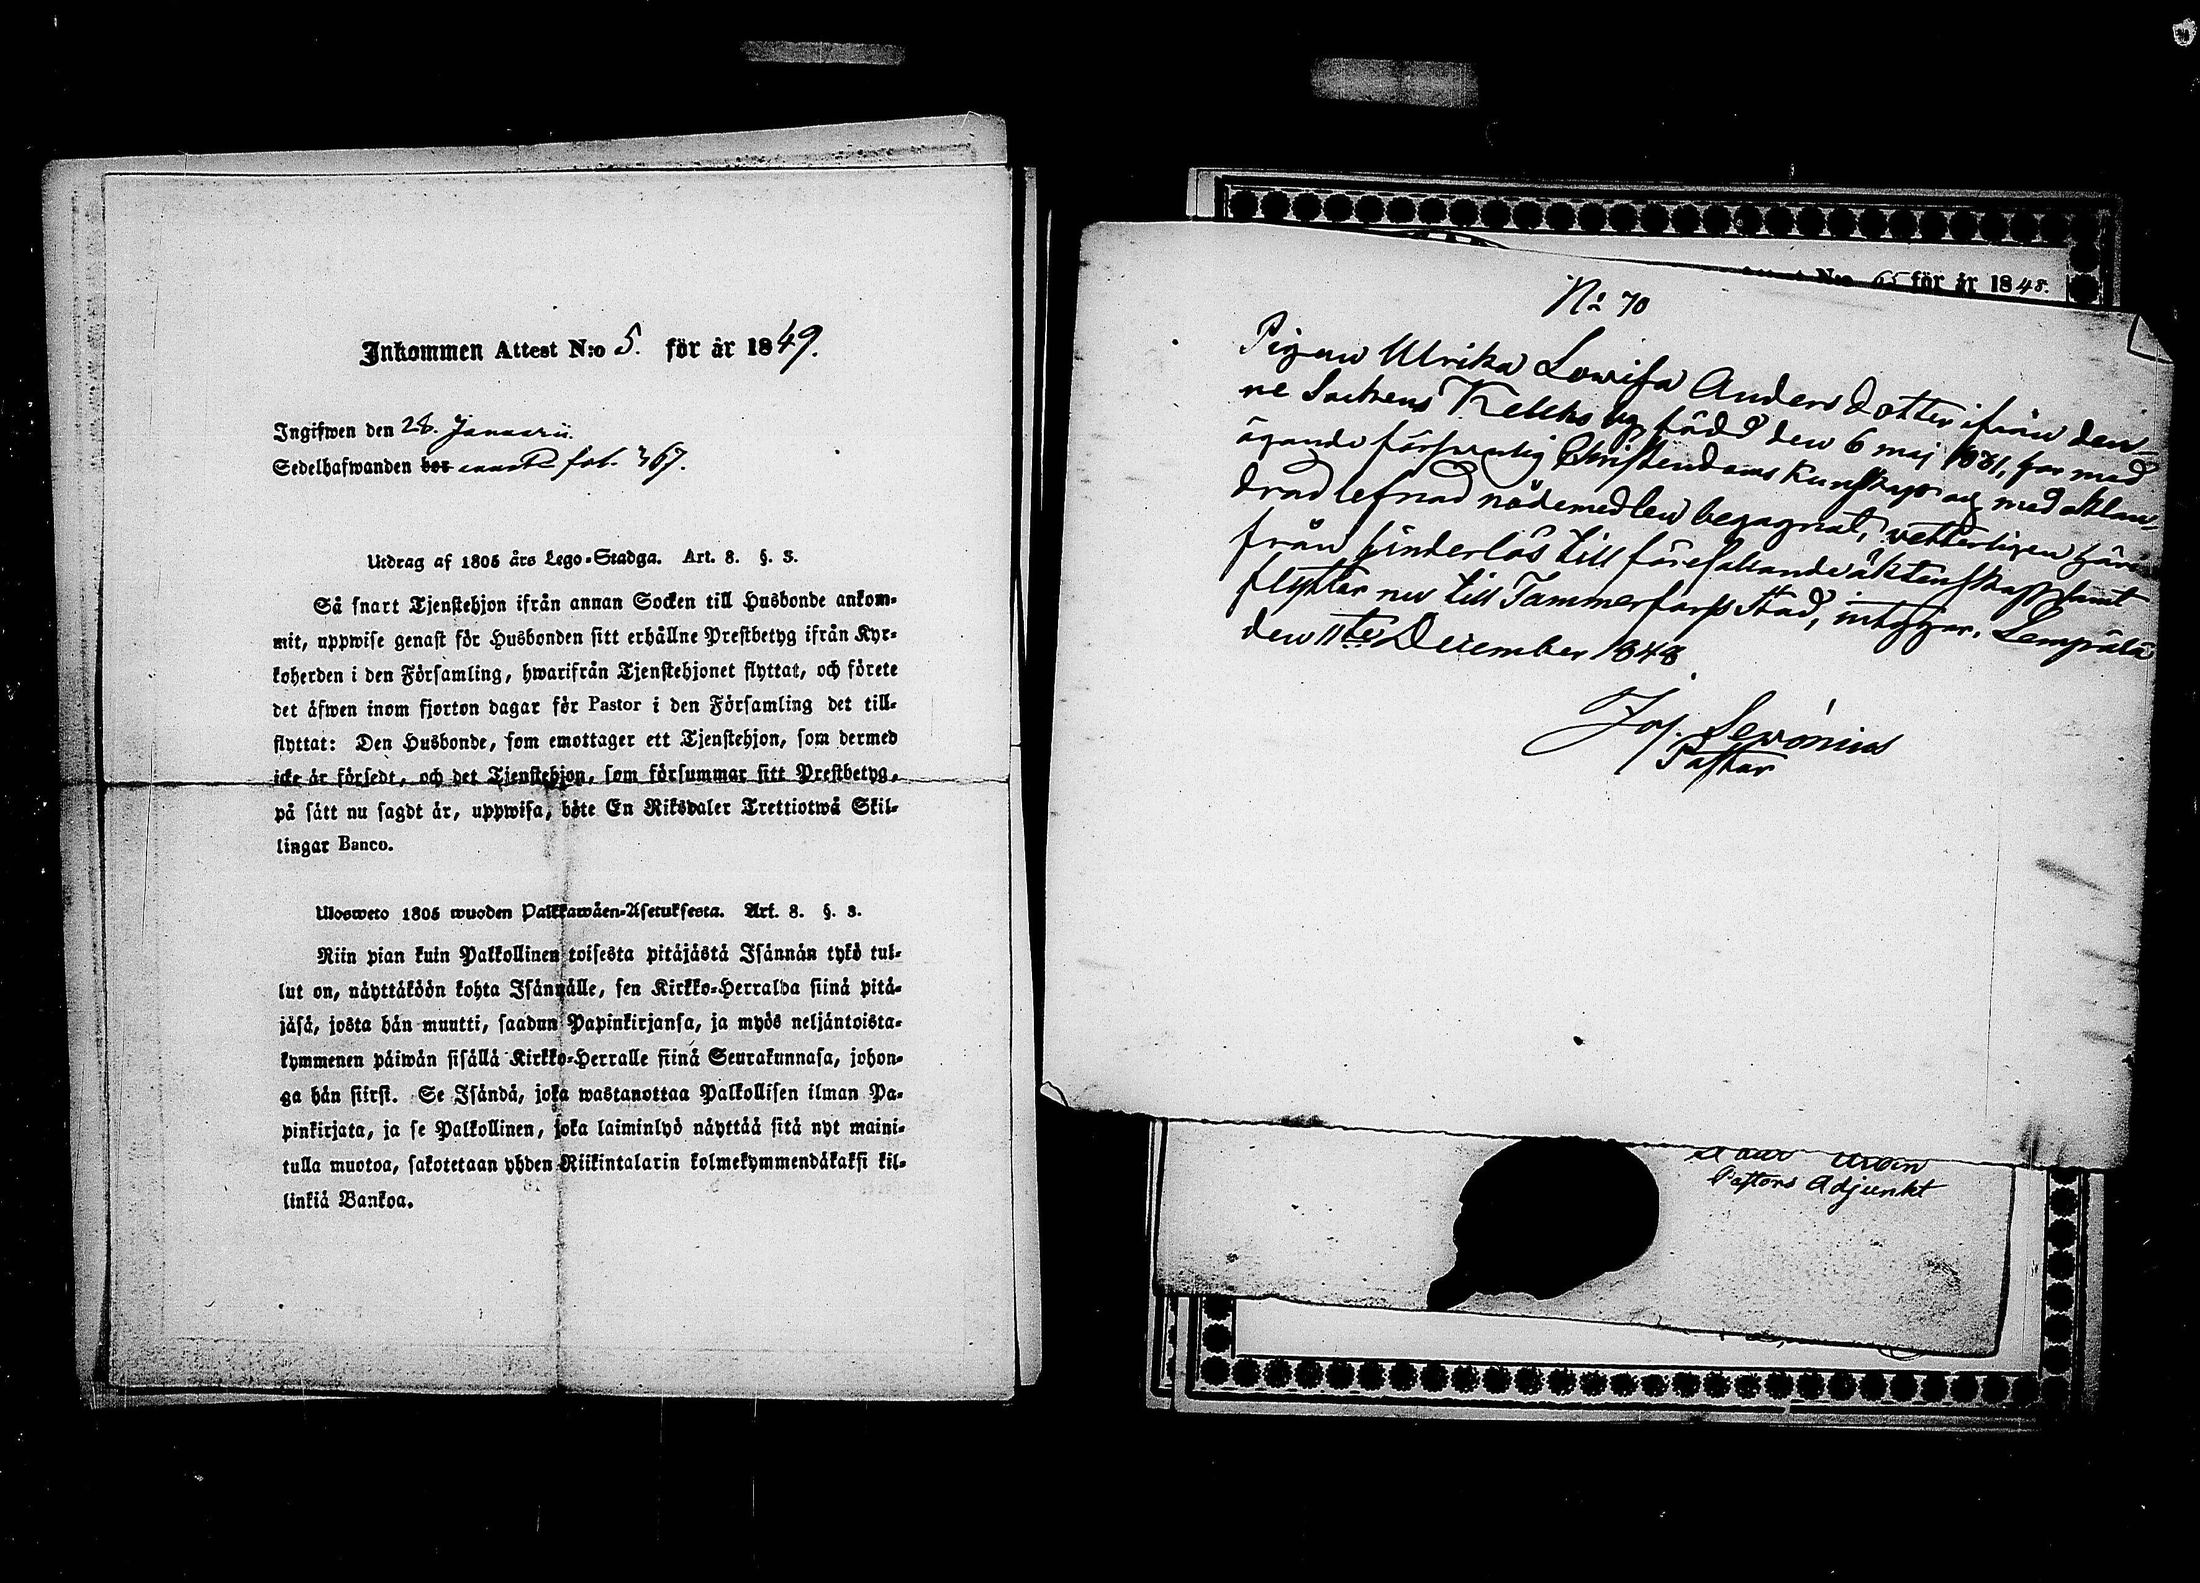 Inkommen Attest N:o 5. för år 1849.
Ingifwen den 28. Januarii.
Sedelhafwanden bor fol. 367.
Utdrag af 1805 års Lego-Stadga. Art. 8. §. 3.
Så snart Tjenstehjon ifrån annan Socken till Husbonde ankom-
mit, uppwise genast för Husbonden sitt erhållne Prestbetyg ifrån Kyr-
koherden i den Församling, hwarifrån Tjenstehjonet flyttat, och förete
det äfwen inom fjorton dagar för Pastor i den Församling det till-
flyttat: Den Husbonde, som emottager ett Tjenstehjon, som dermed
icke är försedt, och det Tjenstehjon, som försummar sitt Prestbetyg,
på sätt nu sagdt är, uppwisa, böte En Riksdaler Trettiotwå Skil-
lingar Banco.
Ulosweto 1805 wuoden Palkkawäen-Asetuksesta. Art. 8. §. 3.
Niin pian kuin Palkollinen toisesta pitäjästä Isännän tykö tul-
lut on, näyttäköön kohta Isännälle, sen Kirkko-Herralda siinä pitä-
jäsä, josta hän muutti, saadun Papinkirjansa, ja myös neljäntoista-
kymmenen päiwän sisällä Kirkko-Herralle siinä Seurakunnasa, johon-
ga hän siirst. Se Isändä, joka wastanottaa Palkollisen ilman Pa-
pinkirjata, ja se Palkollinen, joka laiminlyö näyttää sitä nyt maini-
tulla muotoa, sakotetaan yhden Riikintalarin kolmekymmendäkaksi kil-
linkiä Bankoa.
N:o 65 för år 1848.
No 70
Pigan Ulrika Lovisa Andersdotter ifrån den-
ne Sockens by, född den 6 maj 1831, har med
ägande försvarlig Christendoms kunskap och med oklan-
drad lefnad nådemedlen begagnat, vetterligen här-
ifrån hinderlös till förefallande äktenskap samt
flyttar nu till Tammerfors stad, intygar. Lempäälä
den 11te December 1848.
Pastor
Pastors Adjunkt